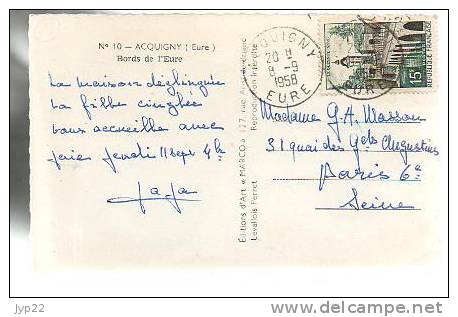 N° 10 - ACQUIGNY (Eure)
Bords de l'Eure
La maison déglinguée
La fille cinglée
vous accueille avec
joie jeudi 11 sept 4h
Editions d'Art « MARCO » 127, rue
Levallois Perret
Reproduction Interdite
ACQUIGNY
20 H
8-9
1958
EURE
15F
REPUBLIQUE FRANÇAISE
Madame G.A. Masson
31 quai des Gds Augustins
Paris 6e
Seine
jyp22
http://www.delcampe.net